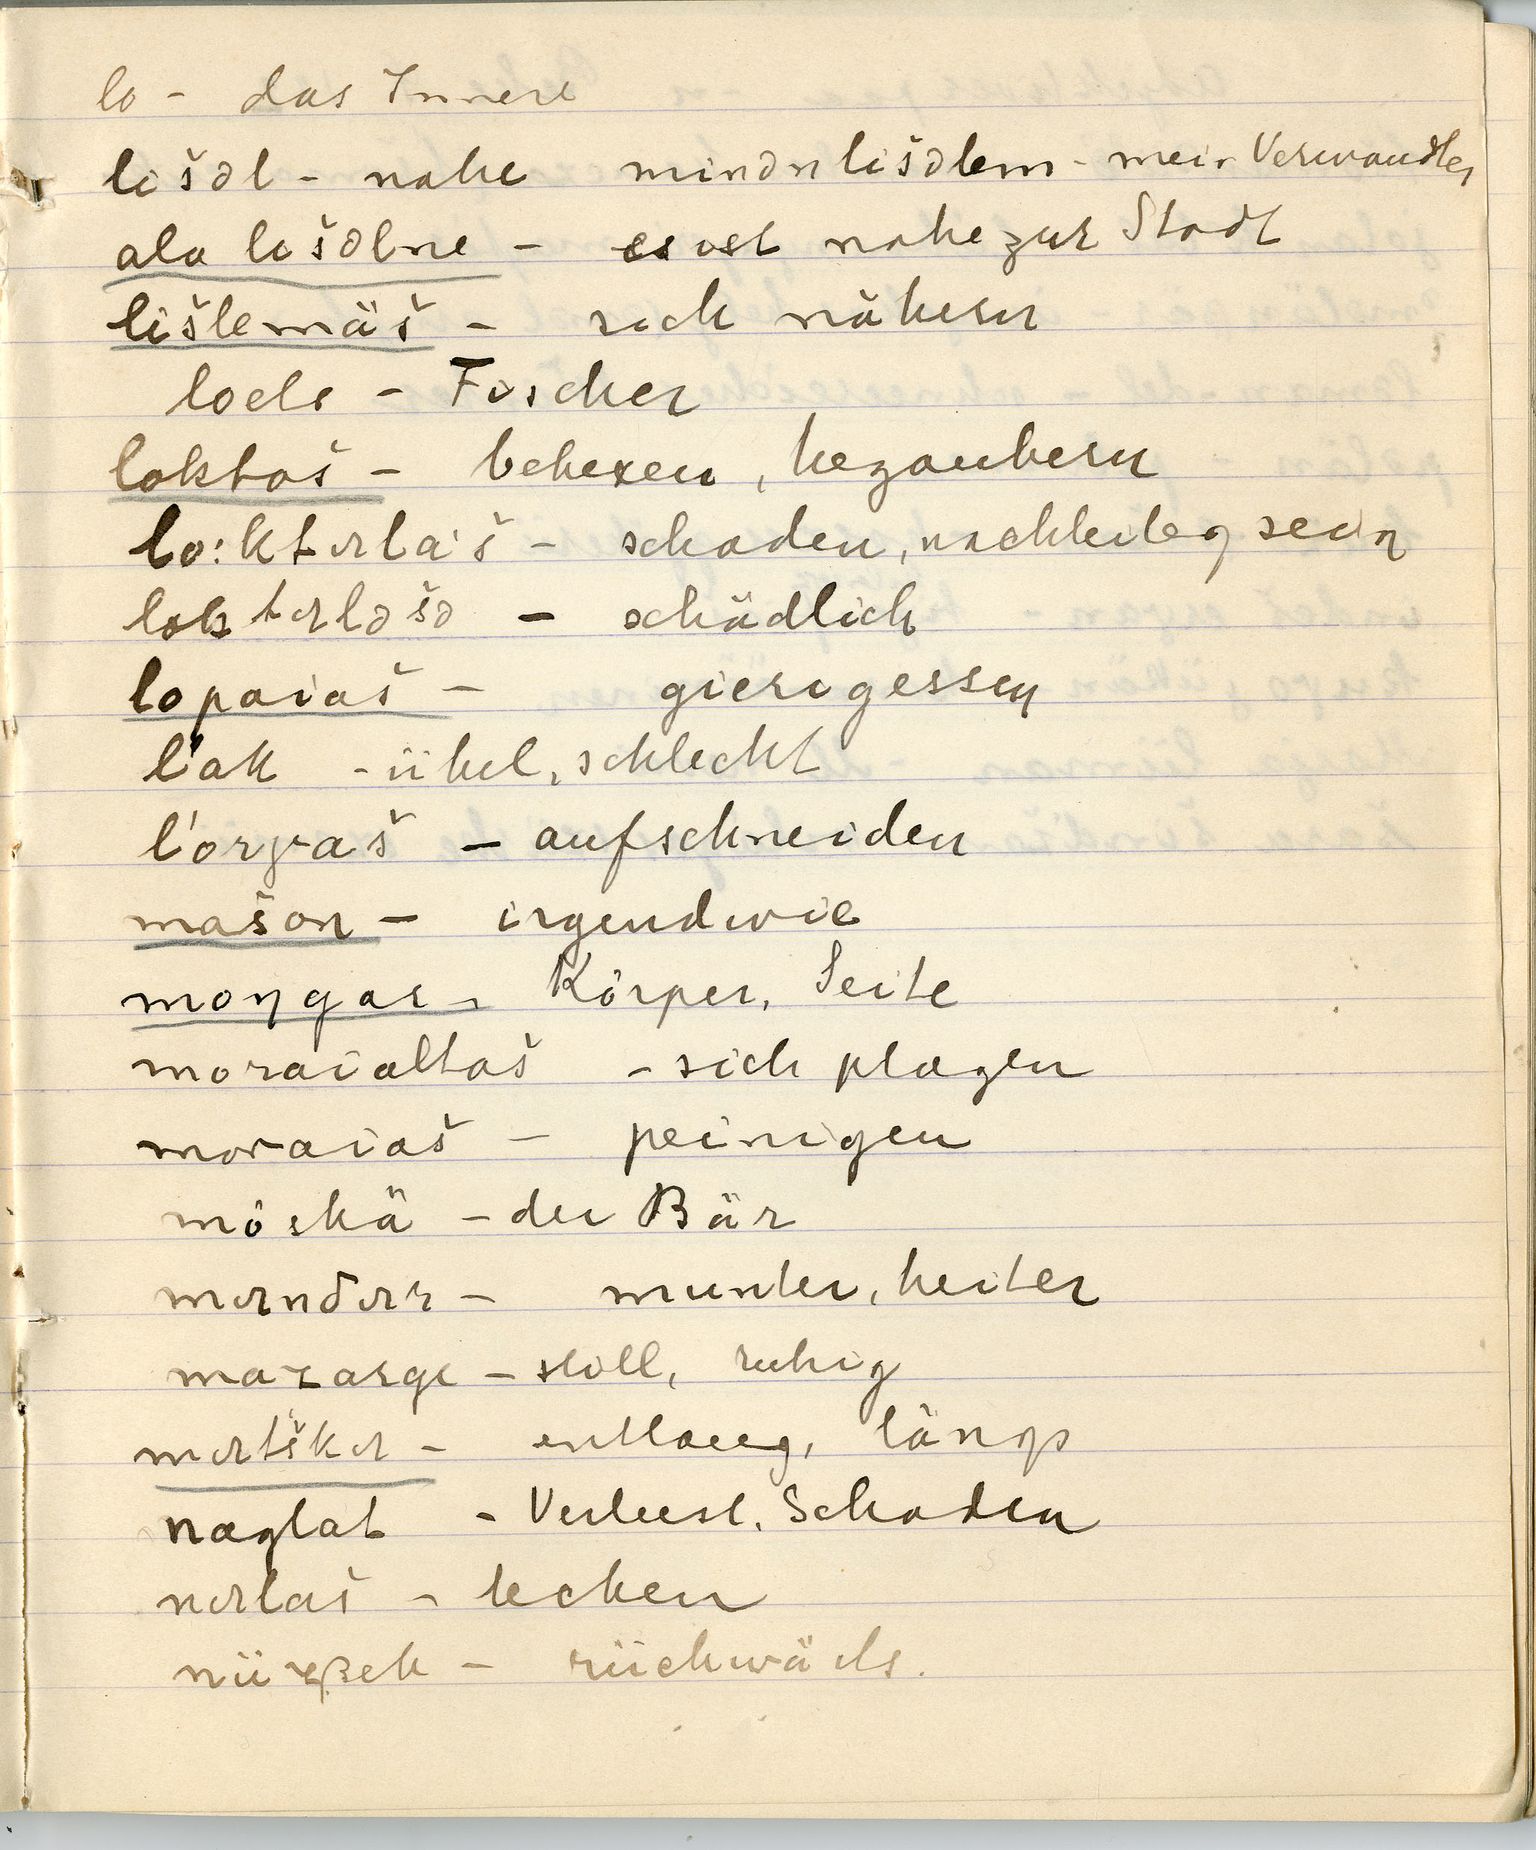 lo - das Innere
lišəl - nahe minən lišəlem - mein Verwandter
ala lišəlne - es ist nahe zur Stadt
lišlemäš - sich nähern
loele - Fischer
loktaš - behexen, bezaubern
lo:ktəlaš - schaden, nachteilig sein
loktələšə - schädlich
lopaiaš - gierig essen
l'ak - übel, schlecht
l'orγaš - aufschneiden
mašon - irgendwie
moŋgər - Körper, Seite
moraialtaš - sich plagen
moraiaš - peinigen
möskä - der Bär
məndər - munter, heiter
mazarge - still, ruhig
mətškə - entlang, längs
naglat - Verlust, Schaden
nəlaš - lecken
rückwärts.